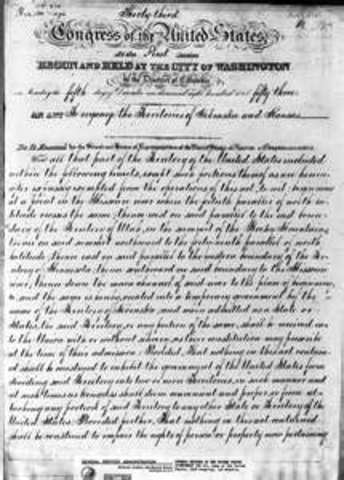 Thirty third
Congress of the United States
At the First Session
BEGUN AND HELD AT THE CITY OF WASHINGTON
in the District of Columbia
on Monday the fifth day of December one thousand eight hundred and fifty three
AN ACT To organize the Territories of Nebraska and Kansas
Be it Enacted by the Senate and House of Representatives of the United States of America in Congress assembled
That all that part of the Territory of the United States included
within the following limits, except such portions thereof as are herein
after expressly exempted from the operations of this act, to wit: beginning
at a point in the Missouri river where the fortieth parallel of north
latitude crosses the same; thence west on said parallel to the east boun-
dary of the Territory of Utah, on the summit of the Rocky Mountains;
thence on said summit northward to the forty-ninth parallel of north
latitude; thence east on said parallel to the western boundary of the Ter-
ritory of Minnesota; thence southward on said boundary to the Missouri
river; thence down the main channel of said river to the place of beginning,
be, and the same is hereby, created into a temporary government by the
name of the Territory of Nebraska; and when admitted as a State or
States, the said Territory, or any portion of the same, shall be received in-
to the Union with or without slavery, as their constitution may prescribe
at the time of their admission: Provided, That nothing in this act contain-
ed shall be construed to inhibit the government of the United States from
dividing said Territory into two or more Territories, in such manner and
at such times as Congress shall deem convenient and proper, or from at-
taching any portion of said Territory to any other State or Territory of the
United States: Provided further, That nothing in this act contained
shall be construed to impair the rights of person or property now pertaining
GENERAL SERVICES ADMINISTRATION